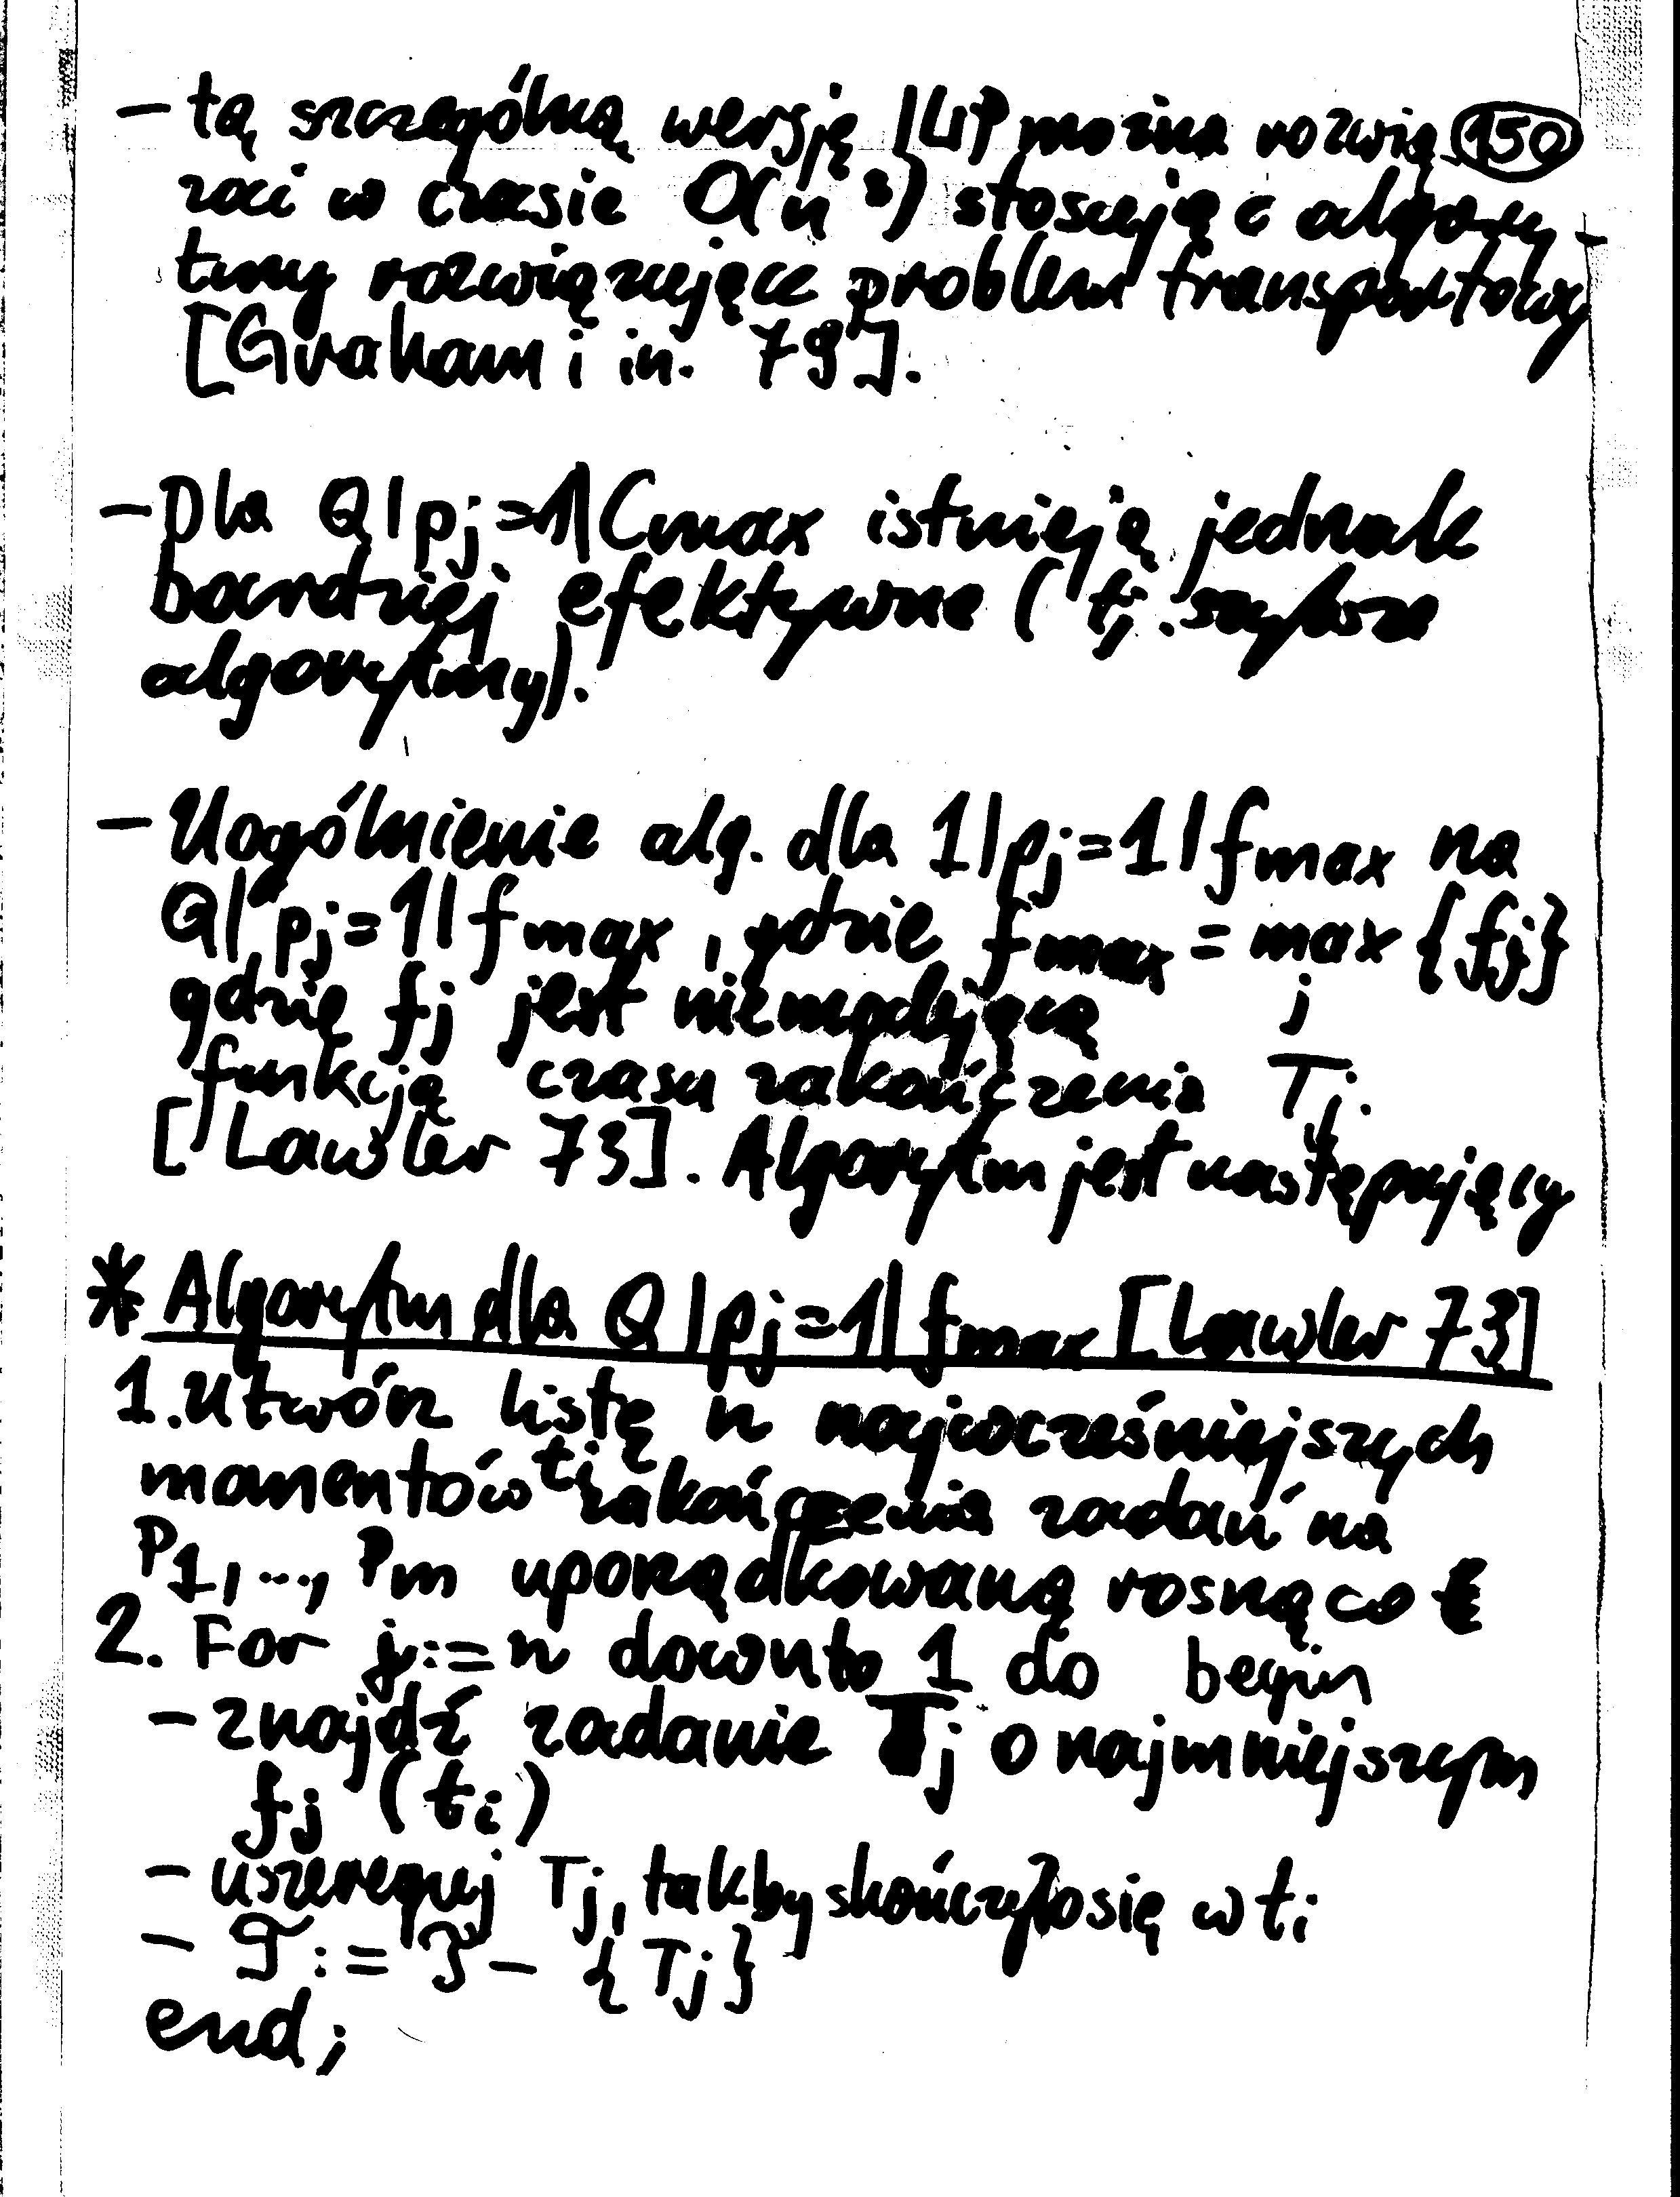 – tą szczególną wersję ILP można rozwią 150
zać w czasie O(n³) stosując algory-
tmy rozwiązujące problem transportowy
[Graham i in. 79].
– Dla Q|pj=1|Cmax istnieją jednak
bardziej efektywne (tj. szybsze
algorytmy).
– Uogólnienie alg. dla 1|pj=1|fmax na
Q|pj=1|fmax, gdzie fmax = max {fj}
gdzie fj jest niemalejącą j
funkcją czasu zakończenia Tj.
[Lawler 73]. Algorytm jest następujący
* Algorytm dla Q|pj=1|fmax [Lawler 73]
1. Utwórz listę n najwcześniejszych
momentów ti zakończenia zadań na
P1,..., Pm uporządkowaną rosnąco
2. For j:=n downto 1 do begin
– znajdź zadanie Tj o najmniejszym
fj (ti)
– uszereguj Tj, tak by skończyło się w ti
– 𝒯 := 𝒯 – {Tj}
end;